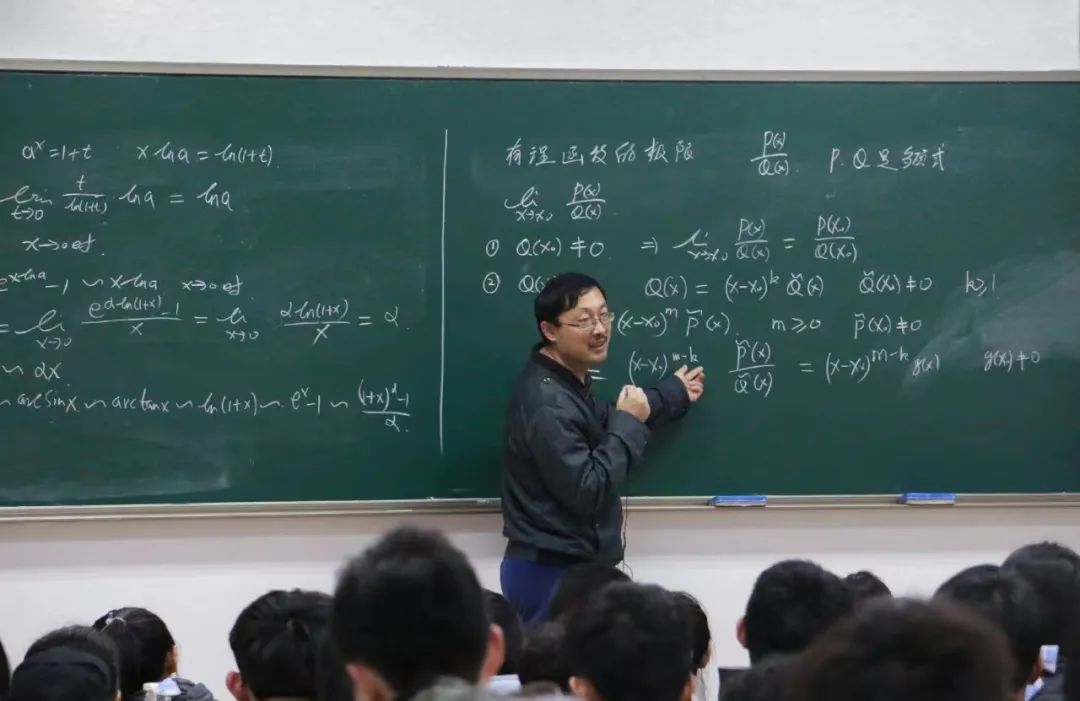 aˣ=1+t x ln a = ln(1+t).
lim t→0 t/ln(1+t) · ln a = ln a
x→0时
eˣ ˡⁿ ᵃ -1 ∽ x ln a x→0时
= lim x→0 (e^(α ln(1+x)) -1)/x = lim x→0 (α ln(1+x))/x = α
∽ αx
∽ arcsin x ∽ arctan x ∽ ln(1+x) ∽ eˣ-1 ∽ ((1+x)^α -1)/α
有理函数的极限 P(x)/Q(x). P.Q是多项式
lim x→x₀ P(x)/Q(x)
① Q(x₀) ≠ 0 ⇒ lim x→x₀ P(x)/Q(x) = P(x₀)/Q(x₀)
② Q(x Q(x) = (x-x₀)^k Q̃(x) Q̃(x₀) ≠ 0 k≥1
(x-x₀)^m P̃(x). m≥0 P̃(x₀) ≠ 0
= (x-x₀)^(m-k) P̃(x)/Q̃(x) = (x-x₀)^(m-k) g(x) g(x) ≠ 0